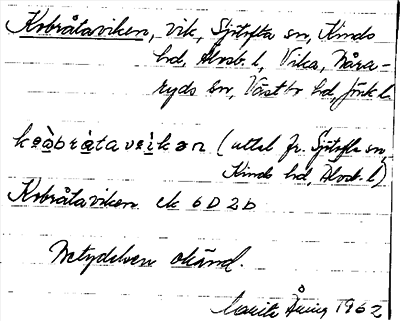 Kobråtaviken, vik, Sjötofta sn, Kinds
hd, Älvsb. l, Vika, Nåra-
ryds sn, Västbo hd, Jönk. l.
(uttal fr. Sjötofta sn,
Kinds hd, Älvsb. l)
Kobråtaviken ek 6D 2b
Betydelsen okänd.
Marit Åring 1962